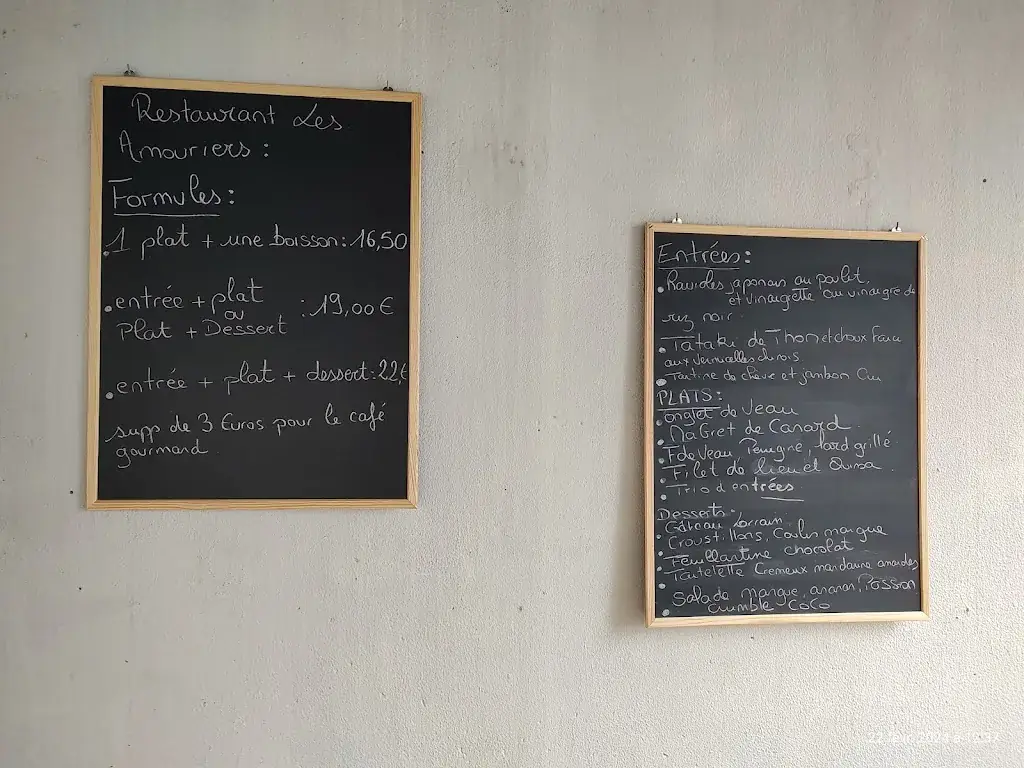 Restaurant Les
Amouriers :
Formules :
.1 plat + une boisson : 16,50
.entrée + plat
ou
Plat + Dessert
: 19,00 €
.entrée + plat + dessert : 22,€
supp de 3 Euros pour le café
gourmand
Entrées :
. Ravioles japonais au poulet,
et vinaigrette ou vinaigre de
riz noir .
. Tataki de Thon et choux
aux
. Tartine de chèvre et jambon Cru
PLATS :
. onglet de Veau
. MaGret de Canard
. F de Veau, lard grillé
. Filet de lieu et
. Trio d'entrées
Desserts :
. Gâteau Lorrain
. Croustillons, Coulis mangue
. Feuillantine chocolat
. Tartelette Cremeux mandarine amandes
. Salade mangue, ananas,
crumble CoCo